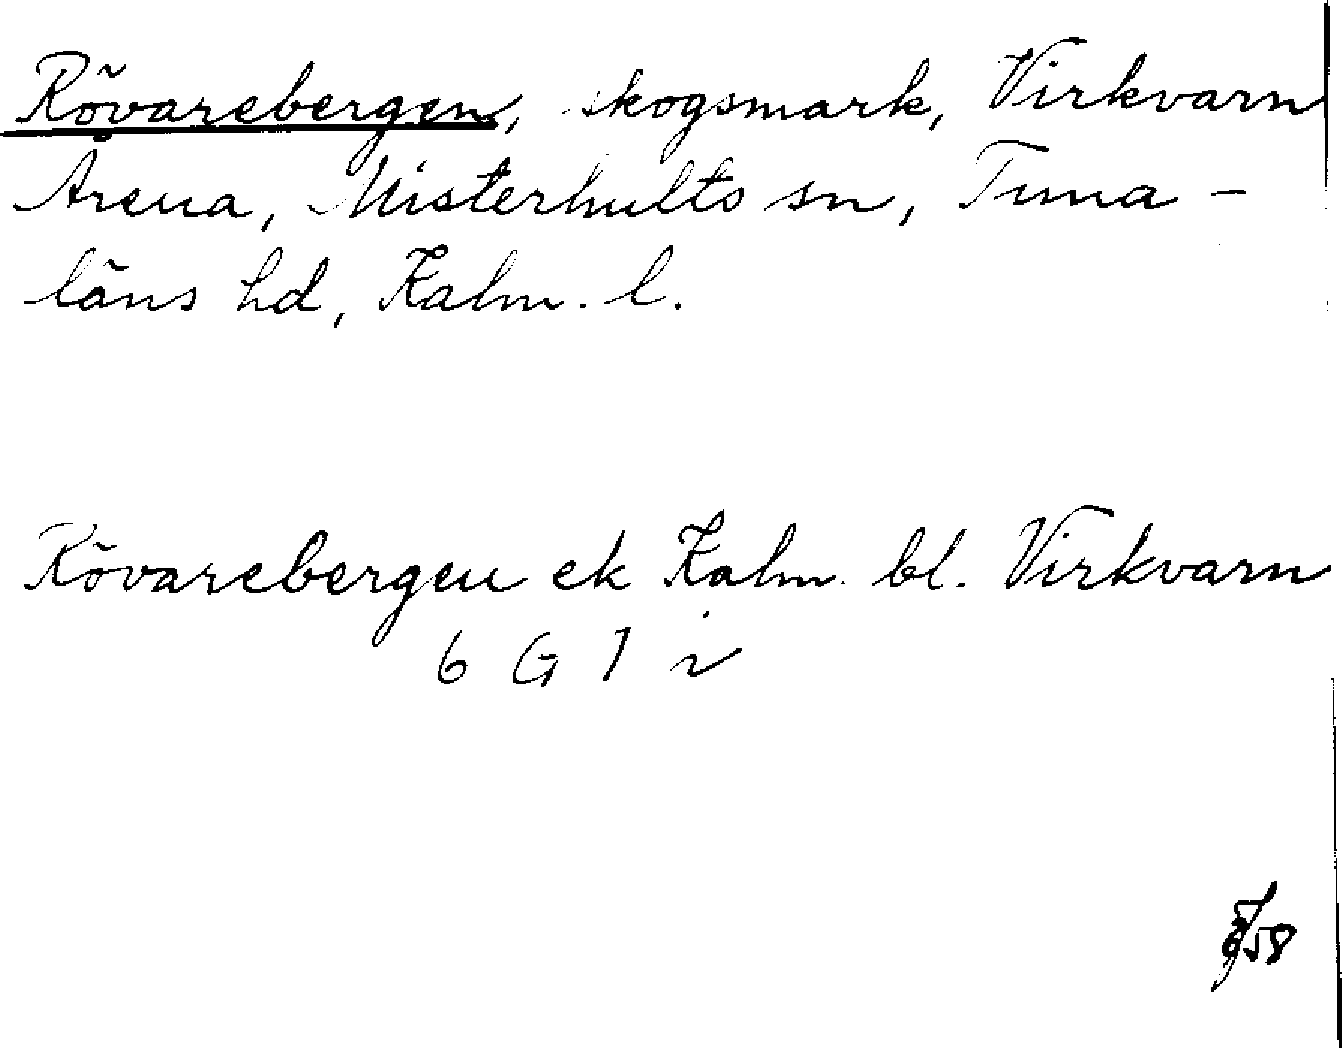 Rövarebergen, skogsmark, Virkvarn
Årena, Misterhults sn, Tuna-
läns hd, Kalm. l.
Rövarebergen ek Kalm. bl. Virkvarn
6 G 1 i